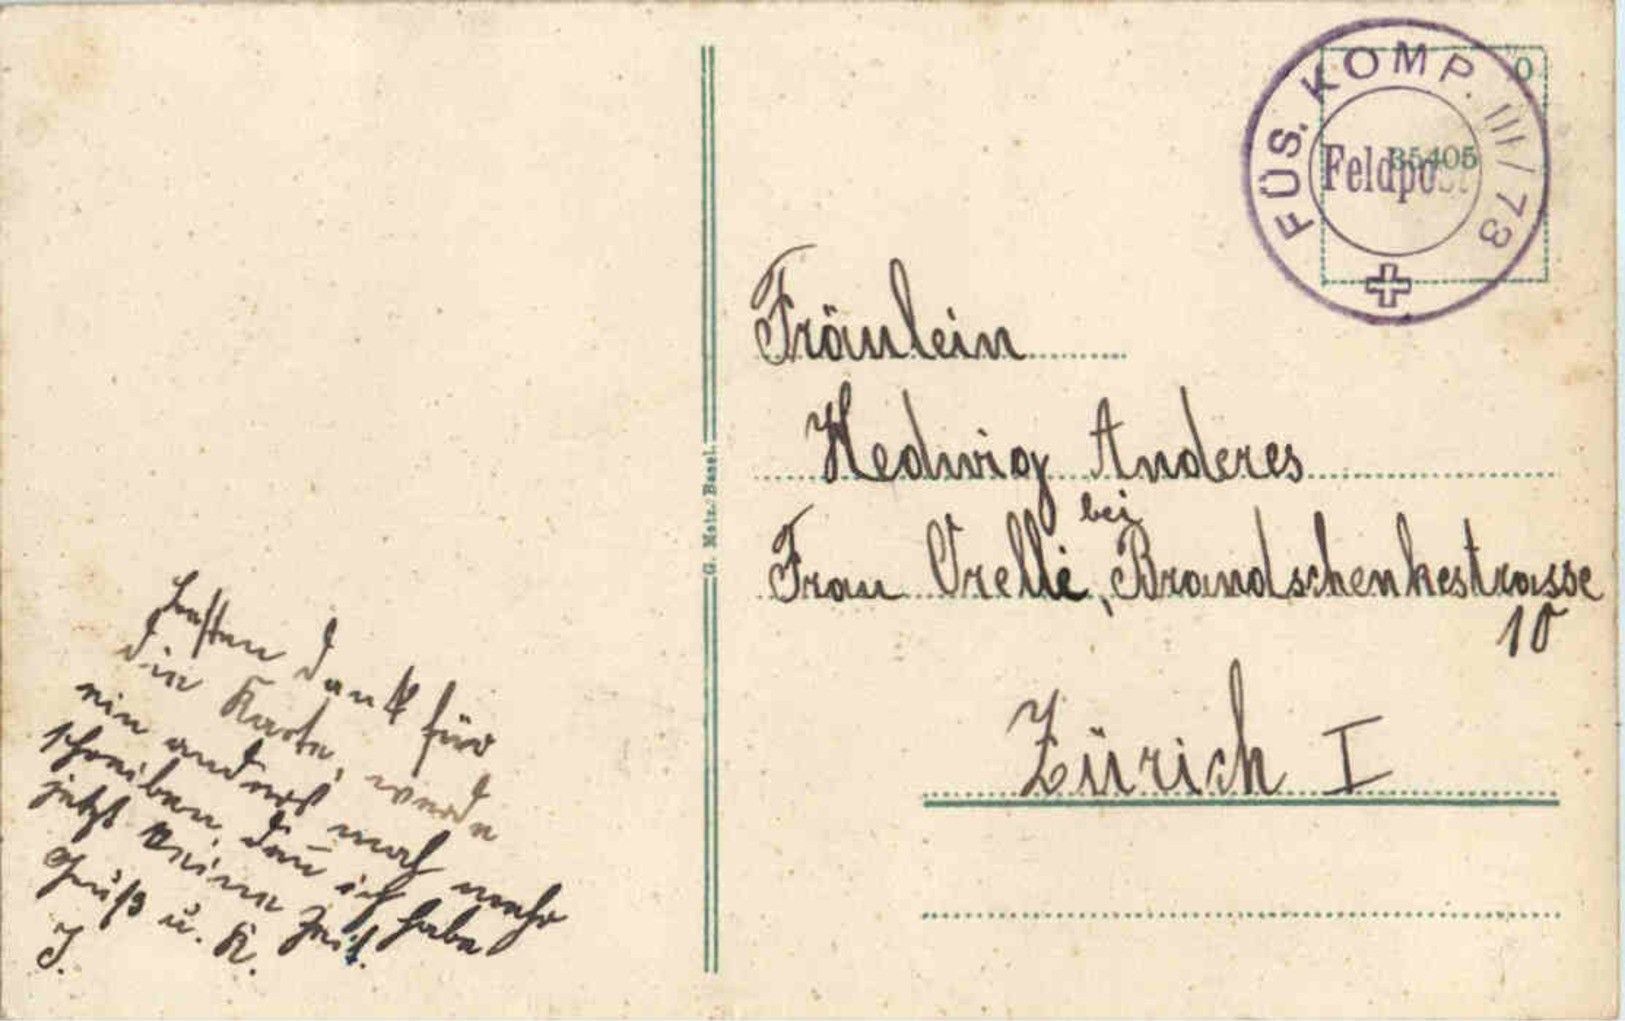 FÜS. KOMP. III/73
Feldpost
35405
Fräulein
Hedwig Anderes
bei
Frau Orelli, Brandschenkestrasse
10
Zürich I
G. Metz, Basel.
besten Dank für
die Karte, werde
ein andres mal mehr
schreiben, den̄ ich habe
jetzt keine Zeit.
Gruß u. K.
J.